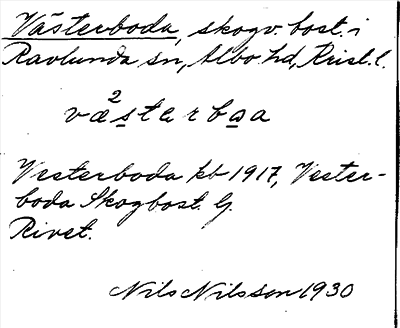 Västerboda, skogv. bost. i
Ravlunda sn, Albo hd, Krist. l.
væ²stɛrbɷa
Vesterboda kb 1917, Vester-
boda Skogbost. G.
Rivet.
Nils Nilsson 1930